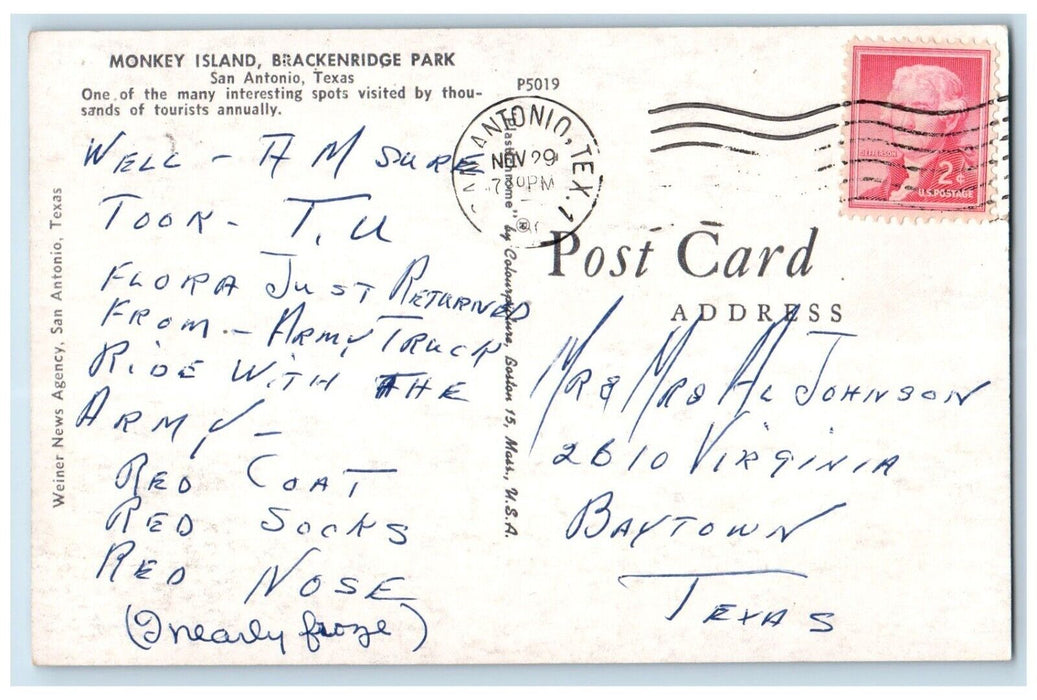 MONKEY ISLAND, BRACKENRIDGE PARK
San Antonio, Texas
One of the many interesting spots visited by thou-
sands of tourists annually.
P5019
WELL - A M SURE
TOOK - T.U
FLORA JUST RETURNED
FROM - ARMY TRUCK
RIDE WITH THE
ARMY -
RED COAT
RED SOCKS
RED NOSE
(I nearly froze)
Weiner News Agency, San Antonio, Texas
"Plastichrome" by Colourpicture, Boston 15, Mass., U.S.A.
SAN ANTONIO, TEX. 1
NOV 29
7 30 PM
JEFFERSON
2¢
U.S. POSTAGE
Post Card
ADDRESS
MR & MRS AL JOHNSON
2610 VIRGINIA
BAYTOWN
TEXAS